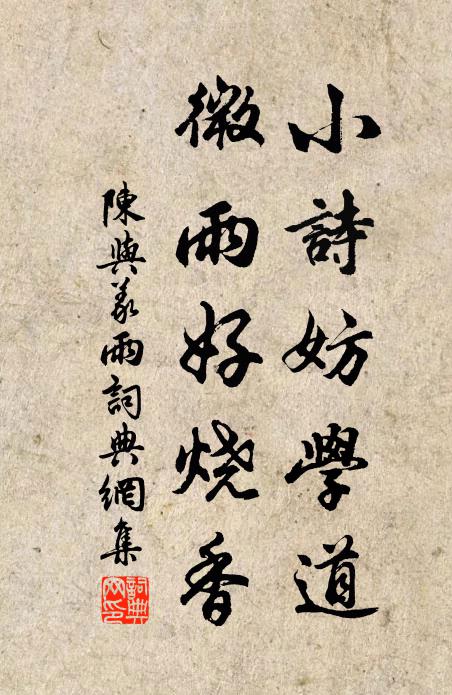 小詩妨學道
微雨好烧香
陳與義雨詞典網集
詞典網印